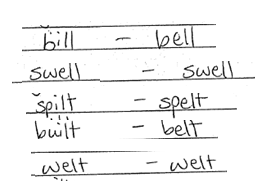 bill - bell
swell - swell
spilt - spelt
built - belt
welt - welt